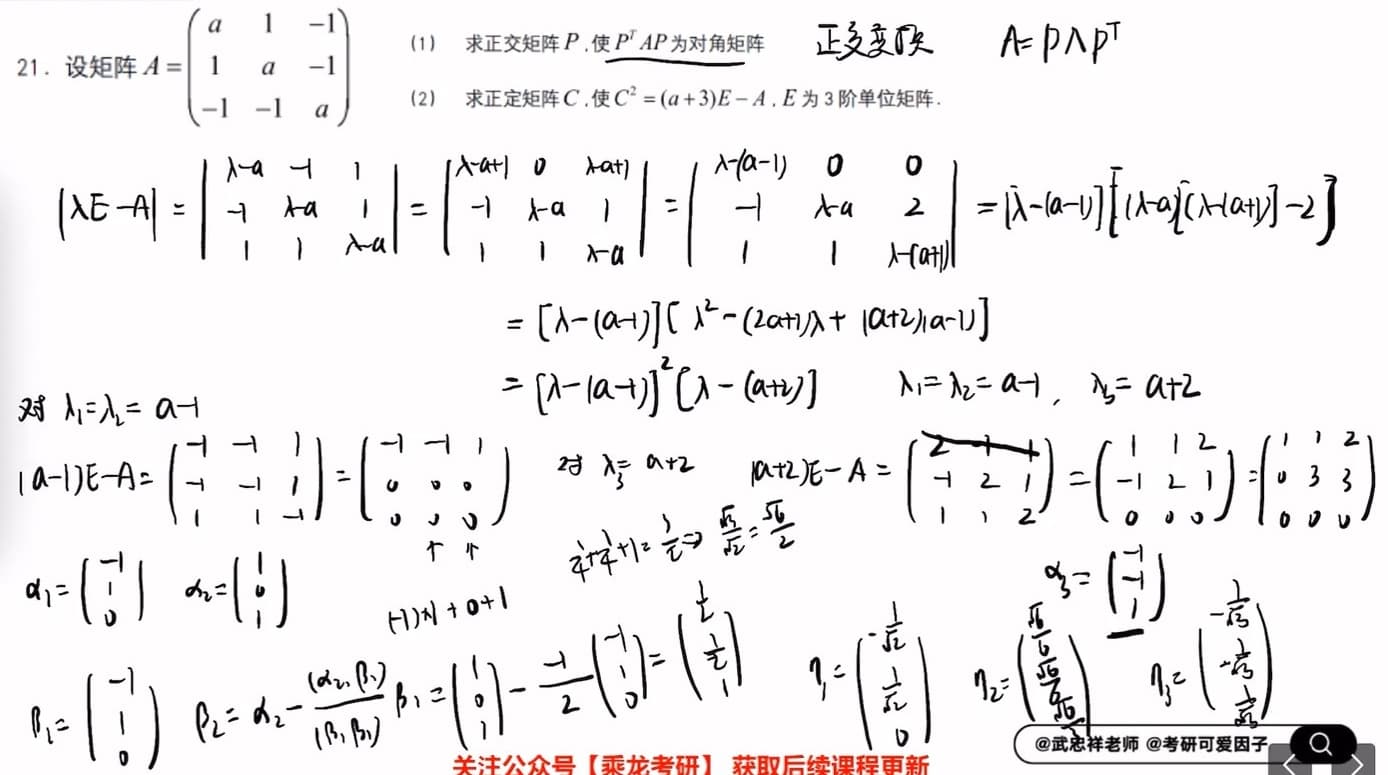 21. 设矩阵 A = ( a 1 −1 ; 1 a −1 ; −1 −1 a )
(1) 求正交矩阵 P , 使 PᵀAP 为对角矩阵
正交变换 A=PΛPᵀ
(2) 求正定矩阵 C , 使 C² = (a+3)E − A , E 为 3 阶单位矩阵.
|λE−A| = | λ−a −1 1 ; −1 λ−a 1 ; 1 1 λ−a | = | λ−a+1 0 λ−a+1 ; −1 λ−a 1 ; 1 1 λ−a | = | λ−(a−1) 0 0 ; −1 λ−a 2 ; 1 1 λ−(a+1) | = [λ−(a−1)][(λ−a)[λ−(a+1)]−2]
= [λ−(a−1)][λ²−(2a+1)λ+(a+2)(a−1)]
= [λ−(a−1)]²[λ−(a+2)] λ₁=λ₂=a−1, λ₃=a+2
对 λ₁=λ₂=a−1
(a−1)E−A= ( −1 −1 1 ; −1 −1 1 ; 1 1 −1 ) = ( −1 −1 1 ; 0 0 0 ; 0 0 0 )
对 λ₃=a+2 (a+2)E−A= ( 2 −1 1 ; −1 2 1 ; 1 1 2 ) = ( 1 1 2 ; −1 2 1 ; 0 0 0 ) = ( 1 1 2 ; 0 3 3 ; 0 0 0 )
1/4+1/4+1=3/2 ⇒ √3/√2=√6/2
α₁= ( −1 ; 1 ; 0 ) α₂= ( 1 ; 0 ; 1 )
(−1)×1+0+1
α₃= ( −1 ; −1 ; 1 )
β₁= ( −1 ; 1 ; 0 ) β₂=α₂− (α₂,β₁)/(β₁,β₁) β₁= ( 1 ; 0 ; 1 ) − −1/2 ( −1 ; 1 ; 0 ) = ( 1/2 ; 1/2 ; 1 )
η₁= ( −1/√2 ; 1/√2 ; 0 ) η₂= ( √6/6 ; √6/6 ; √6/3 ) η₃= ( −1/√3 ; −1/√3 ; 1/√3 )
@武忠祥老师 @考研可爱因子
关注公众号【乘龙考研】 获取后续课程更新